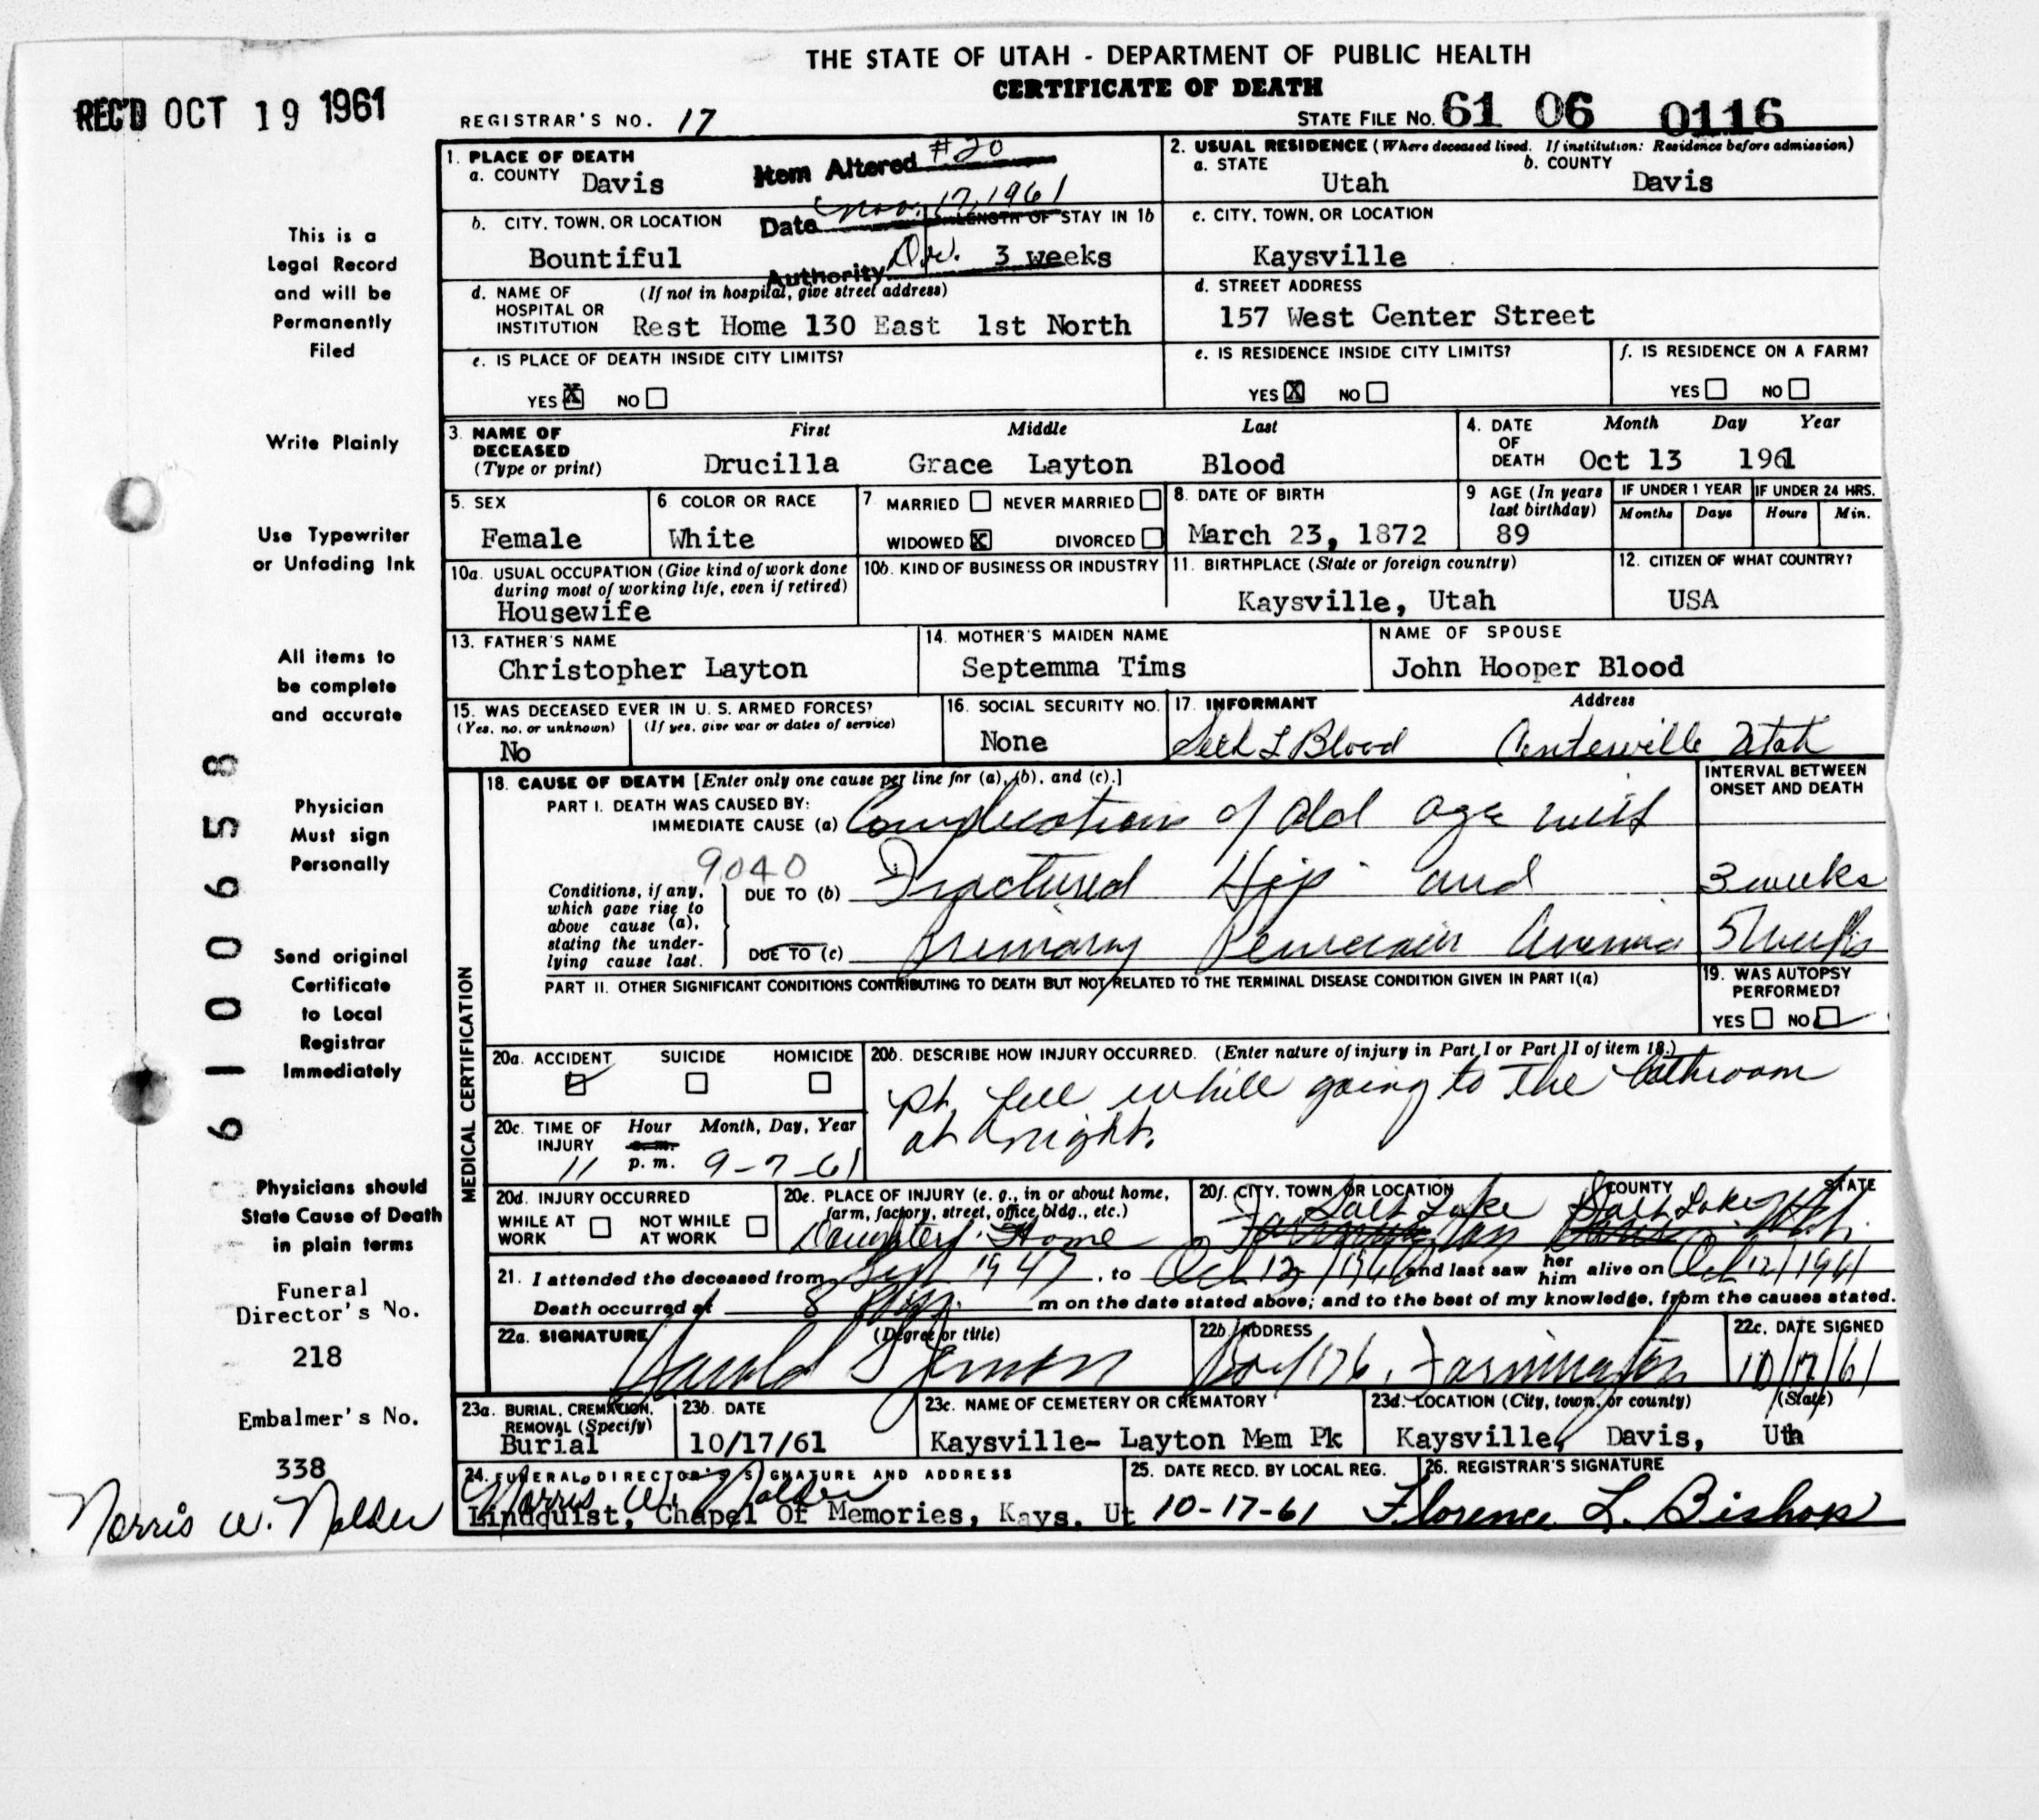 THE STATE OF UTAH - DEPARTMENT OF PUBLIC HEALTH
CERTIFICATE OF DEATH
REC'D OCT 19 1961
REGISTRAR'S NO. 17
STATE FILE NO. 61 06 0116
1. PLACE OF DEATH
a. COUNTY Davis
Item Altered #20
Date Nov. 17, 1961
Authority
2. USUAL RESIDENCE (Where deceased lived. If institution: Residence before admission)
a. STATE Utah
b. COUNTY Davis
b. CITY, TOWN, OR LOCATION
Bountiful
LENGTH OF STAY IN 1b
3 weeks
c. CITY, TOWN, OR LOCATION
Kaysville
d. NAME OF HOSPITAL OR INSTITUTION (If not in hospital, give street address)
Rest Home 130 East 1st North
d. STREET ADDRESS
157 West Center Street
e. IS PLACE OF DEATH INSIDE CITY LIMITS?
YES X NO
e. IS RESIDENCE INSIDE CITY LIMITS?
YES X NO
f. IS RESIDENCE ON A FARM?
YES NO
3. NAME OF DECEASED (Type or print)
First Middle Last
Drucilla Grace Layton Blood
4. DATE OF DEATH
Month Day Year
Oct 13 1961
5. SEX
Female
6 COLOR OR RACE
White
7 MARRIED NEVER MARRIED
WIDOWED X DIVORCED
8. DATE OF BIRTH
March 23, 1872
9 AGE (In years last birthday)
89
IF UNDER 1 YEAR
Months Days
IF UNDER 24 HRS.
Hours Min.
10a. USUAL OCCUPATION (Give kind of work done during most of working life, even if retired)
Housewife
10b. KIND OF BUSINESS OR INDUSTRY
11. BIRTHPLACE (State or foreign country)
Kaysville, Utah
12. CITIZEN OF WHAT COUNTRY?
USA
13. FATHER'S NAME
Christopher Layton
14. MOTHER'S MAIDEN NAME
Septemma Tims
NAME OF SPOUSE
John Hooper Blood
15. WAS DECEASED EVER IN U. S. ARMED FORCES?
(Yes, no, or unknown) (If yes, give war or dates of service)
No
16. SOCIAL SECURITY NO.
None
17. INFORMANT Address
Seth L Blood Centerville Utah
18. CAUSE OF DEATH [Enter only one cause per line for (a), (b), and (c).]
INTERVAL BETWEEN ONSET AND DEATH
PART I. DEATH WAS CAUSED BY:
IMMEDIATE CAUSE (a) Complications of old age with
9040
Conditions, if any, which gave rise to above cause (a), stating the underlying cause last.
DUE TO (b) Fractured Hip and 3 weeks
DUE TO (c) Primary Anemia 5 weeks
PART II. OTHER SIGNIFICANT CONDITIONS CONTRIBUTING TO DEATH BUT NOT RELATED TO THE TERMINAL DISEASE CONDITION GIVEN IN PART I(a)
19. WAS AUTOPSY PERFORMED?
YES NO
MEDICAL CERTIFICATION
20a. ACCIDENT SUICIDE HOMICIDE
20b. DESCRIBE HOW INJURY OCCURRED. (Enter nature of injury in Part I or Part II of item 18.)
pt. fell while going to the bathroom
at night.
20c. TIME OF INJURY
Hour Month, Day, Year
11 a.m. p.m. 9-7-61
20d. INJURY OCCURRED
WHILE AT WORK NOT WHILE AT WORK
20e. PLACE OF INJURY (e. g., in or about home, farm, factory, street, office bldg., etc.)
Daughters Home
20f. CITY, TOWN, OR LOCATION COUNTY STATE
Salt Lake Salt Lake Utah
Farmington Davis
21. I attended the deceased from Sept 1947, to Oct 12, 1961 and last saw her him alive on Oct 12, 1961
Death occurred at 8 m on the date stated above; and to the best of my knowledge, from the causes stated.
22a. SIGNATURE (Degree or title)
Harold
22b. ADDRESS
Box 176, Farmington
22c. DATE SIGNED
10/17/61
23a. BURIAL, CREMATION, REMOVAL (Specify)
Burial
23b. DATE
10/17/61
23c. NAME OF CEMETERY OR CREMATORY
Kaysville- Layton Mem Pk
23d. LOCATION (City, town, or county) (State)
Kaysville, Davis, Uth
24. FUNERAL DIRECTOR'S SIGNATURE AND ADDRESS
Norris W. Nalder
Lindquist, Chapel Of Memories, Kays. Ut
25. DATE RECD. BY LOCAL REG.
10-17-61
26. REGISTRAR'S SIGNATURE
Florence L. Bishop
This is a
Legal Record
and will be
Permanently
Filed
Write Plainly
Use Typewriter
or Unfading Ink
All items to
be complete
and accurate
Physician
Must sign
Personally
Send original
Certificate
to Local
Registrar
Immediately
Physicians should
State Cause of Death
in plain terms
Funeral
Director's No.
218
Embalmer's No.
338
Norris W. Nalder
61 00658